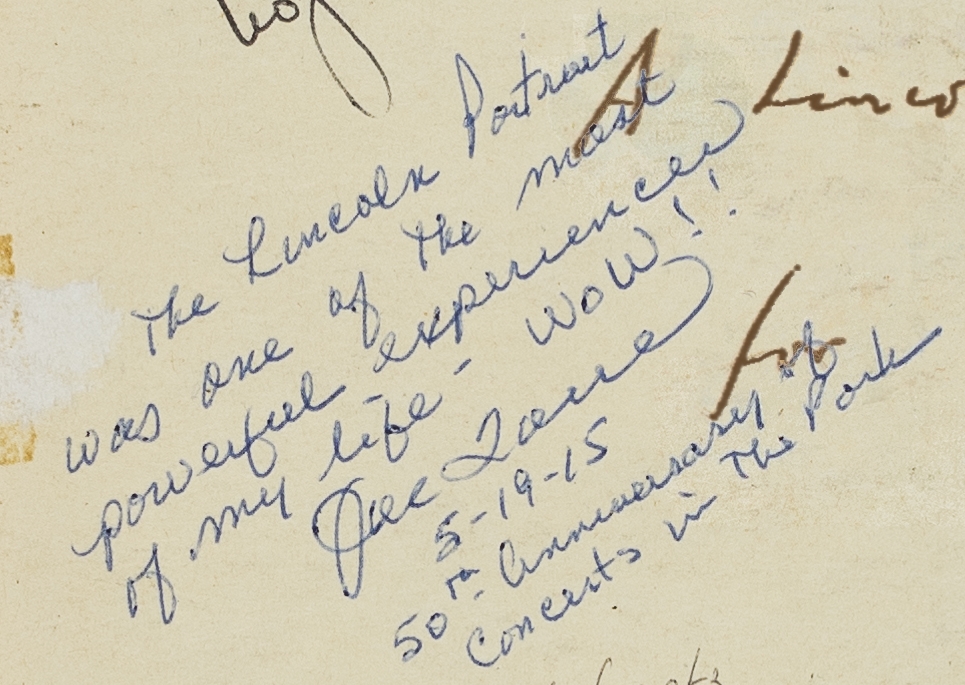 A Linco
The Lincoln Portrait
was one of the most
powerful experiences
of my life - WOW!!
Joe Torre
5-19-15
50th Anniversary of
Concerts in The Park
for